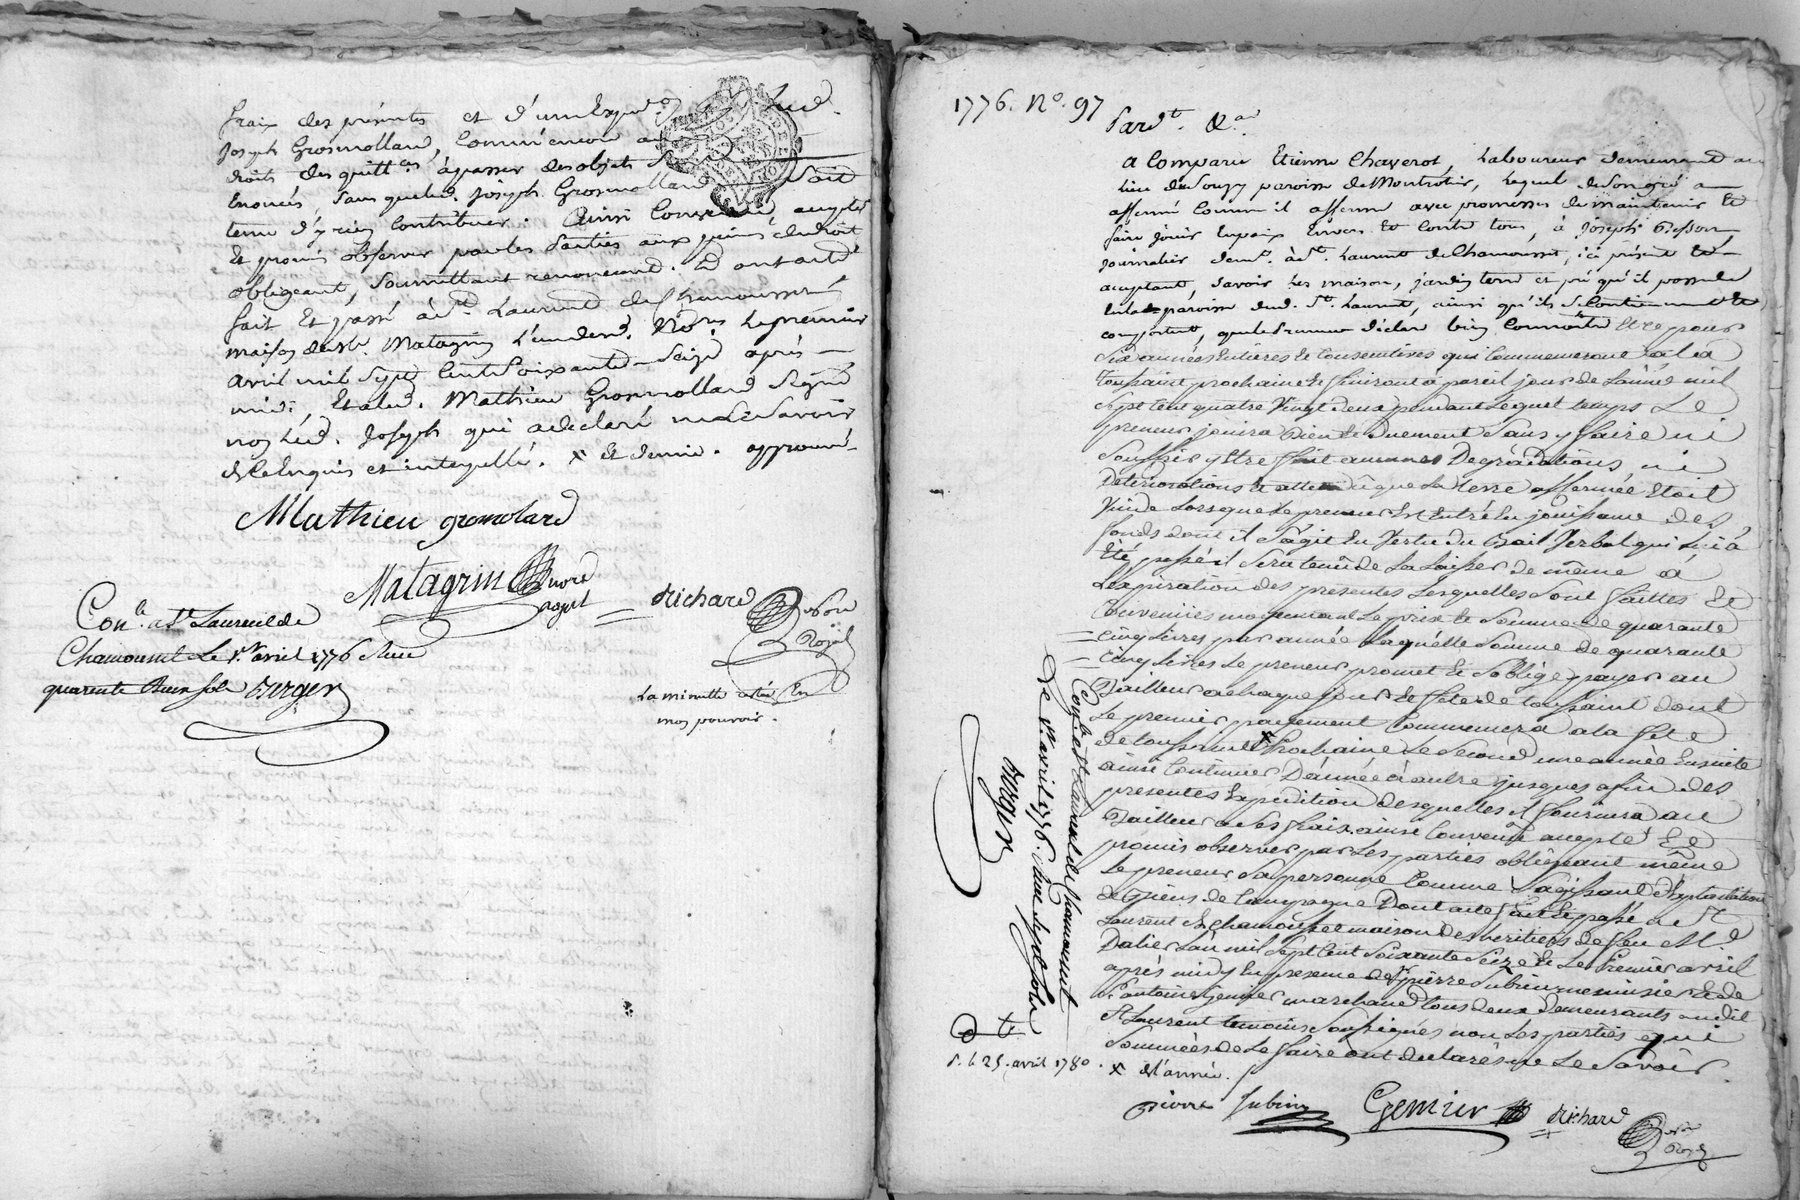 frais des présentes et d'un Exp.
Joseph Grosmolland, Comm'encore a
droits des quitt.ces à passer des objets
Enoncés, sans que led. Joseph Grosmolland soit
tenu d'y rien Contribuer. Ainsi Convenu, accepté
Et promis observer par les Parties aux peines de droit
obligeant, soumettant renonceant. Et ont acte
fait Et passé à St. Laurent de Chamousset
maison dud. Me. Matagrin L'un desd. No.res Le premier
avril mil Sept Cent Soixante-Seize après-
midi, Et a led. Mathieu Grosmolland Signé
non Led. Joseph qui a declaré ne le Savoir
de Ce Enquis et interpellé. x et demie. approuvé
Mathieu gromolard
Matagrin no.re royal
Richard no.re Royal
Con.lé a St Laurent de
Chamousset Le 1.er avril 1776 Reçu
quarente Deux sols Berger
La minutte restée En
mon pouvoir.
1776. No. 97
Pard.t &.a
A Comparu Etienne Chaverot, Laboureur demeurant au
lieu de Souzy paroisse de Montrotier, Lequel de son gré a
affermé Comme il afferme avec promesses de maintenir Et
faire jouir En paix Envers Et Contre tous, à Joseph Besson
journalier dem.t à St. Laurent de Chamousset, ici présent Et
acceptant, Savoir Les maison, jardin terre et pré qu'il possede
En la paroisse dud. St. Laurent, ainsi qu'ils se Contiennent Et
comportent, que le preneur déclare bien Connoître Et ce pour
Six années Entieres Et Consecutives qui Commenceront a la
toussaint prochaine Et finiront a pareil jour de L'année mil
Sept Cent quatre Vingt deux pendant Lequel temps Le
preneur jouira Bien Et Duement Sans y faire ni
Souffrir y Etre fait aucunes Degradations ni
Déteriorations Et attendu que La terre affermée Etoit
Vuide Lorsque Le preneur Est Entré En jouissance des
fonds dont il S'agit En Vertu du Bail Verbal qui Lui a
Eté passé il Sera tenu de La Laisser de même a
L'expiration des presentes Lesquelles Sont faittes Et
Convenües moyennant Le prix Et Somme de quarante
Cinq Livres par année Laquelle Somme de quarante
Cinq Livres Le preneur promet Et S'oblige payer au
Bailleur a chaque jour Et fête de toussaint dont
Le premier payement Commencera a la fête
de toussaint x Prochaine Le Second une année Ensuite
ainsi Continuer D'année a autre jusques a fin des
presentes Expedition desquelles il fournira au
Bailleur a Ses fraix ainsi Convenu accepté Et
promis observer par Les parties obligeant même
Le preneur Sa personne Comme S'agissant d'Exploitation
de Biens de Campagne Dont acte fait Et passé a St
Laurent de Chamousset maison des héritiers de feu Me.
Dalier L'an mil Sept Cent Soixante Seize Et Le Premier avril
après midy En presence de Sr pierre Subrin menuisier Et de
Sr antoine Gemier marchand tous deux Demeurants audit
St Laurent temoins Soussignés non Les parties qui
Sommées de Le faire ont declarés ne Le Savoir.
x de l'année.
Con.lé a St Laurent de Chamousset
Le 1er avril 1776. Reçu Sept Sols
Berger
d. te
S. L. 25. avril 1780.
Pierre Subrin
Gemier
Richard no.re Royal